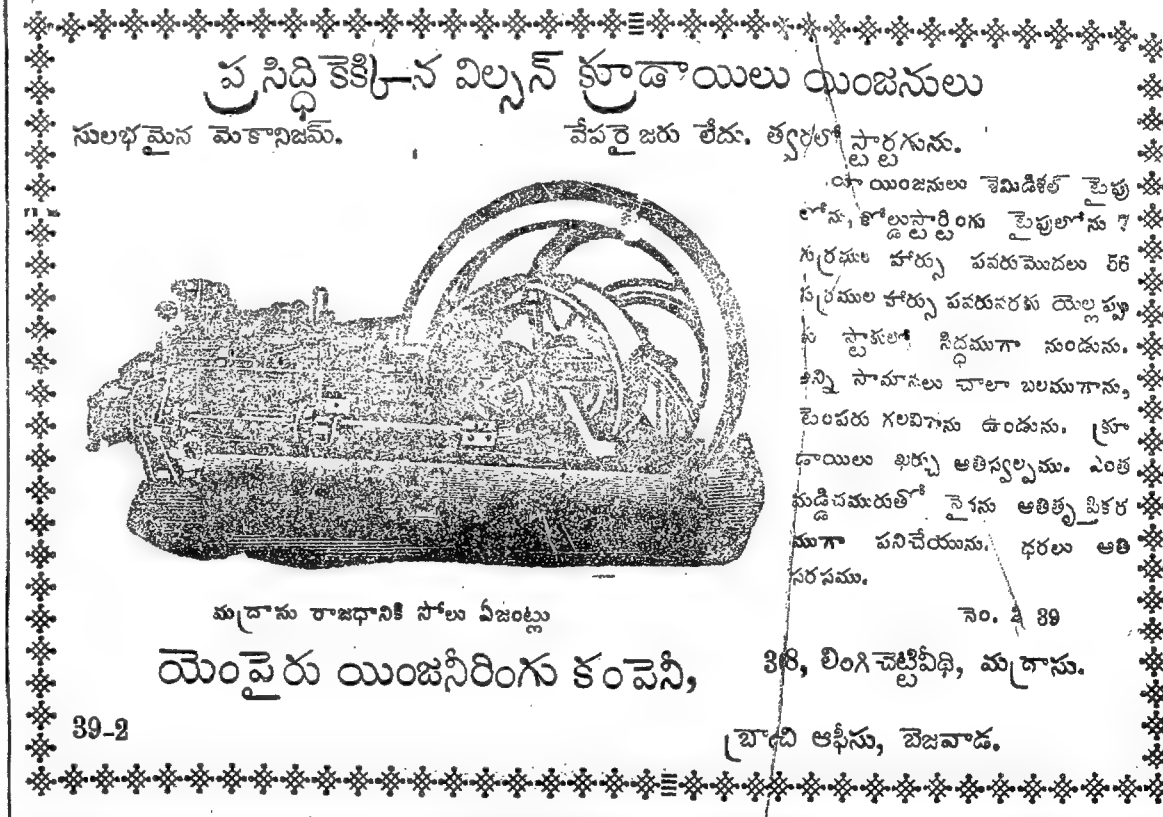 ప్రసిద్ధికెక్కిన విల్సన్ క్రూడాయిలు యింజనులు
సులభమైన మెకానిజమ్. వేపరైజరు లేదు. త్వరలో స్టార్టగును.
యీ యింజనులు శెమిడిశల్ టైపు
లోను, కోల్డుస్టార్టింగు టైపులోను 7
గుర్రముల హార్సు పవరుమొదలు 56
గుర్రముల హార్సు పవరువరకు యెల్లప్పు
డు స్టాకులో సిద్ధముగా నుండును.
అన్ని సామానులు చాలా బలముగాను,
టెంపరు గలవిగాను ఉండును. క్రూ
డాయిలు ఖర్చు అతిస్వల్పము. ఎంత
మడ్డిచమురుతో నైనను అతితృప్తికర
ముగా పనిచేయును. ధరలు అతి
సరసము.
నెం. 39
మద్రాసు రాజధానికి సోలు ఏజంట్లు
యెంపైరు యింజనీరింగు కంపెనీ, లింగిచెట్టివీధి, మద్రాసు.
39-2
బ్రాంచి ఆఫీసు, బెజవాడ.